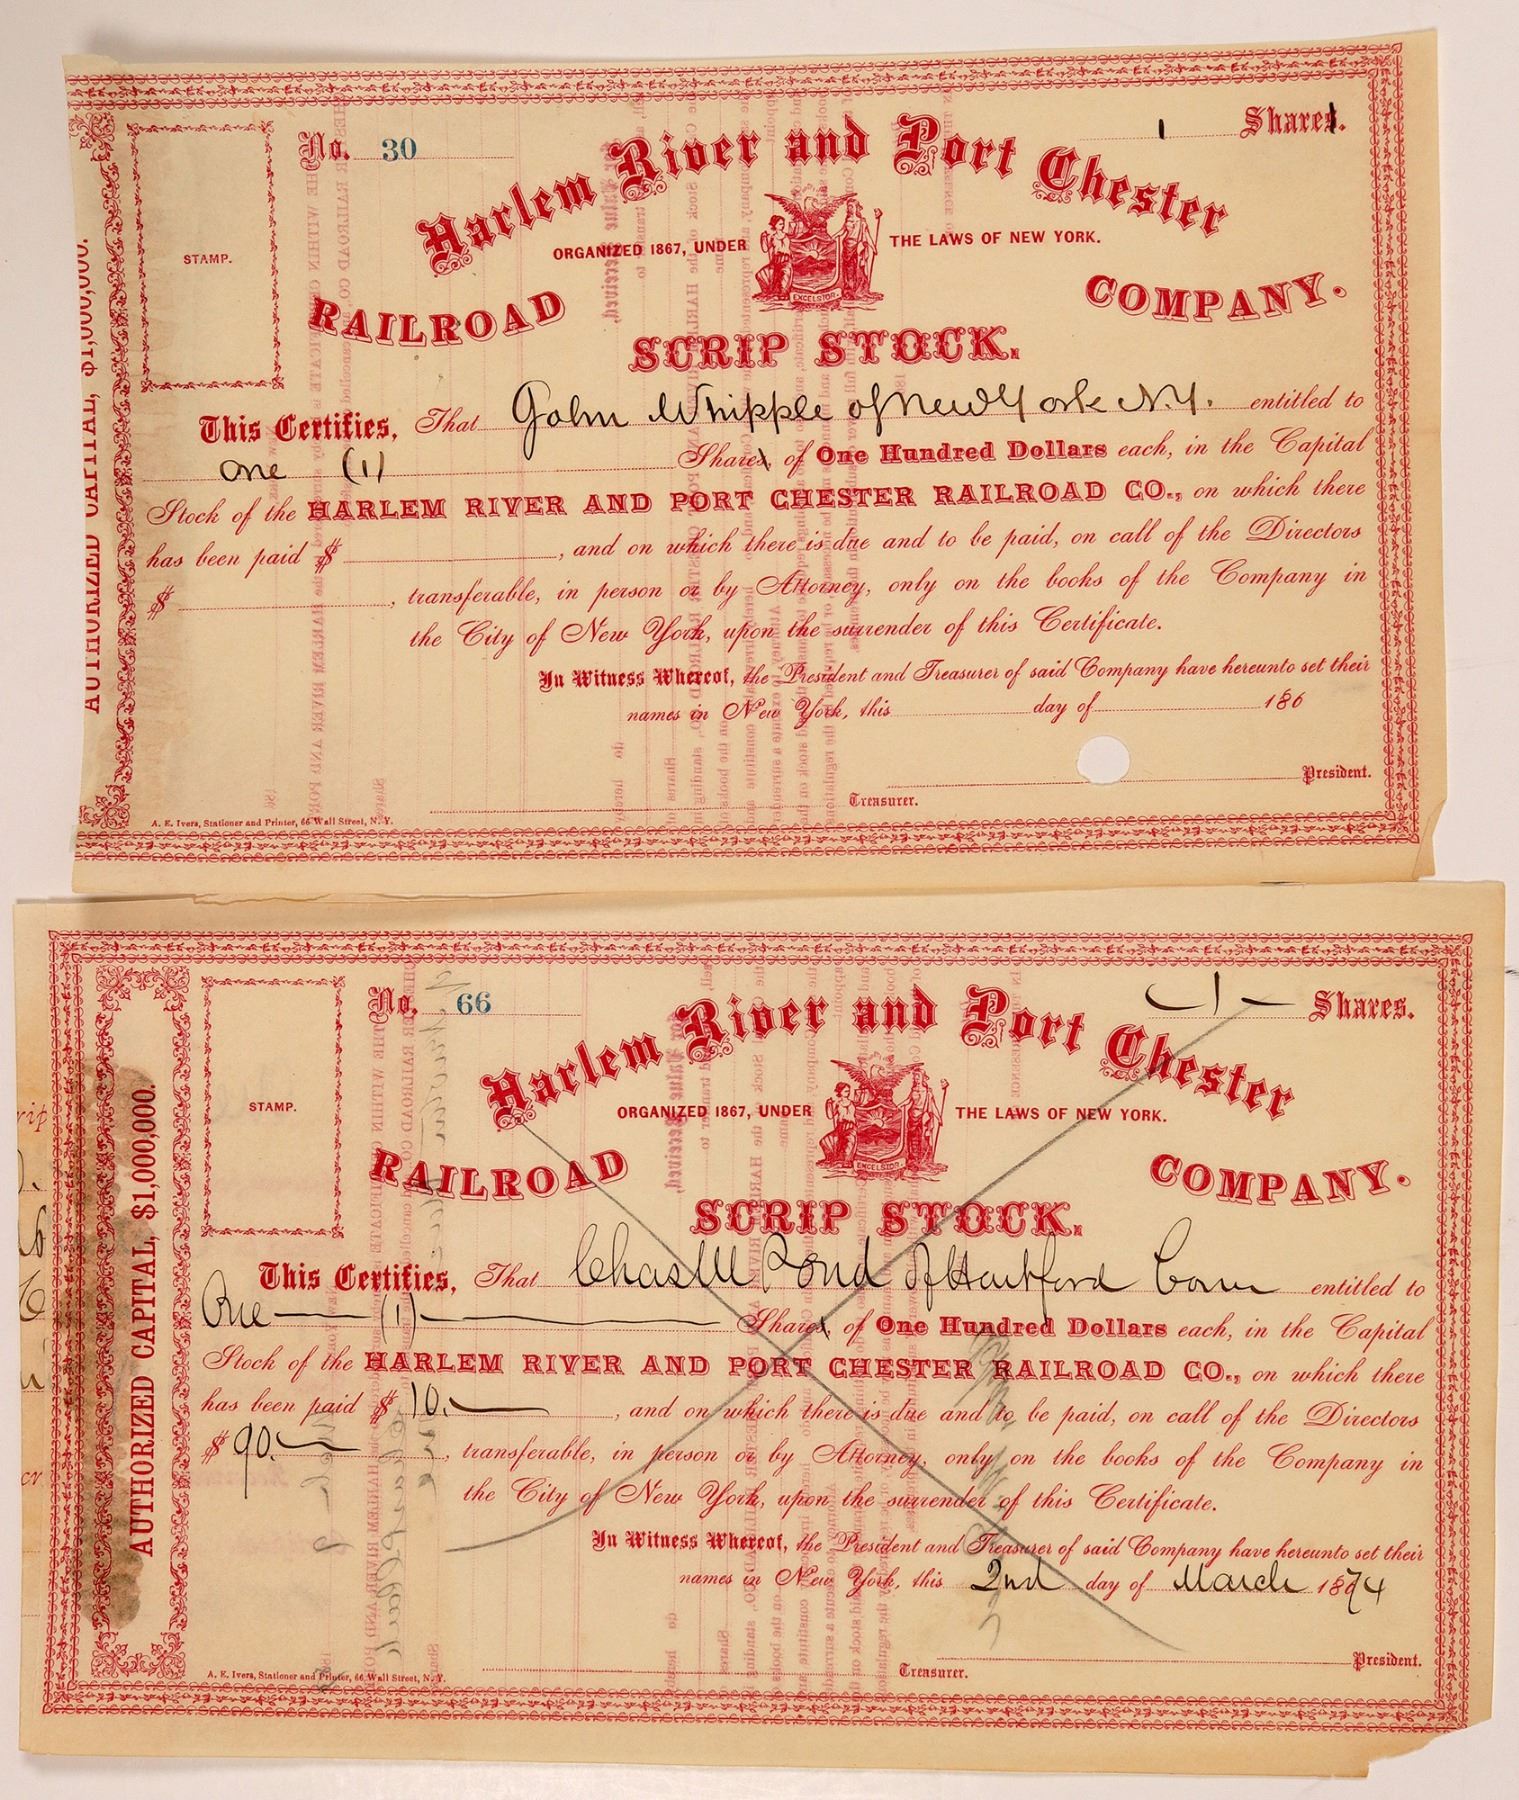 No. 30
1 Shares.
Harlem River and Port Chester
ORGANIZED 1867, UNDER THE LAWS OF NEW YORK.
EXCELSIOR
RAILROAD COMPANY.
SCRIP STOCK.
STAMP.
AUTHORIZED CAPITAL, $1,000,000.
This Certifies, That John Whipple of New York N.Y. entitled to
One (1) Shares, of One Hundred Dollars each, in the Capital
Stock of the HARLEM RIVER AND PORT CHESTER RAILROAD CO., on which there
has been paid $ , and on which there is due and to be paid, on call of the Directors
$ , transferable, in person or by Attorney, only on the books of the Company in
the City of New York, upon the surrender of this Certificate.
In Witness Whereof, the President and Treasurer of said Company have hereunto set their
names in New York, this day of 186
President.
Treasurer.
A. E. Ivers, Stationer and Printer, 66 Wall Street, N. Y.
No. 66
1 Shares.
Harlem River and Port Chester
ORGANIZED 1867, UNDER THE LAWS OF NEW YORK.
EXCELSIOR
RAILROAD COMPANY.
SCRIP STOCK.
STAMP.
AUTHORIZED CAPITAL, $1,000,000.
This Certifies, That Chas M Pond of Hartford Conn entitled to
One (1) Shares, of One Hundred Dollars each, in the Capital
Stock of the HARLEM RIVER AND PORT CHESTER RAILROAD CO., on which there
has been paid $ 10. , and on which there is due and to be paid, on call of the Directors
$ 90. , transferable, in person or by Attorney, only on the books of the Company in
the City of New York, upon the surrender of this Certificate.
In Witness Whereof, the President and Treasurer of said Company have hereunto set their
names in New York, this 2nd day of March 1874
President.
Treasurer.
A. E. Ivers, Stationer and Printer, 66 Wall Street, N. Y.